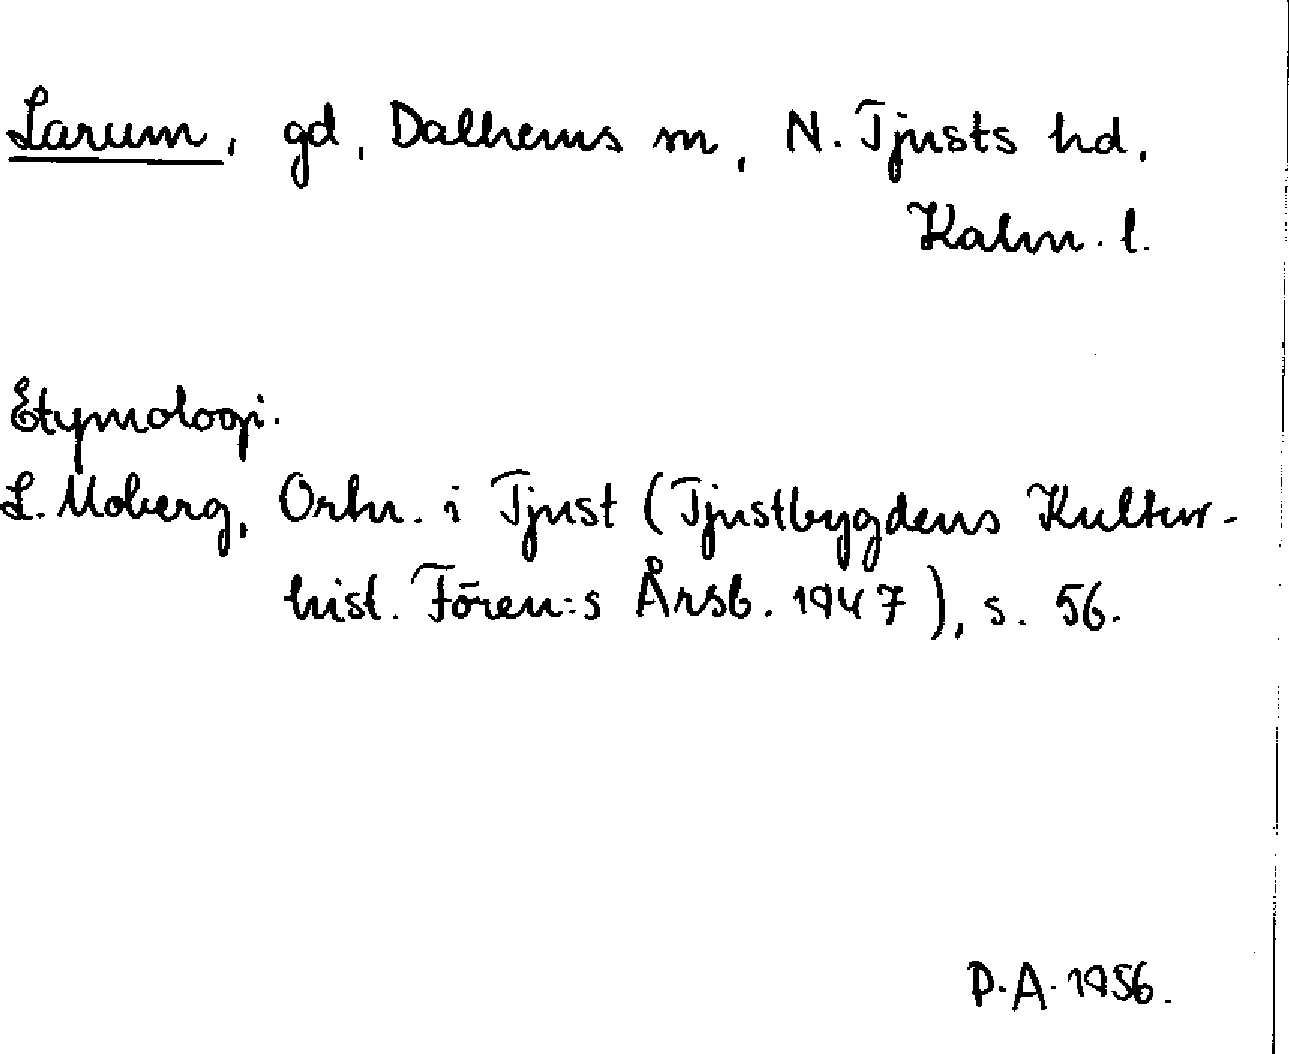 Larum, gd, Dalhems sn, N. Tjusts hd,
Kalm. l.
Etymologi.
L. Moberg, Ortn. i Tjust (Tjustbygdens Kultur-
hist. Fören:s Årsb. 1947), s. 56.
P.A. 1956.